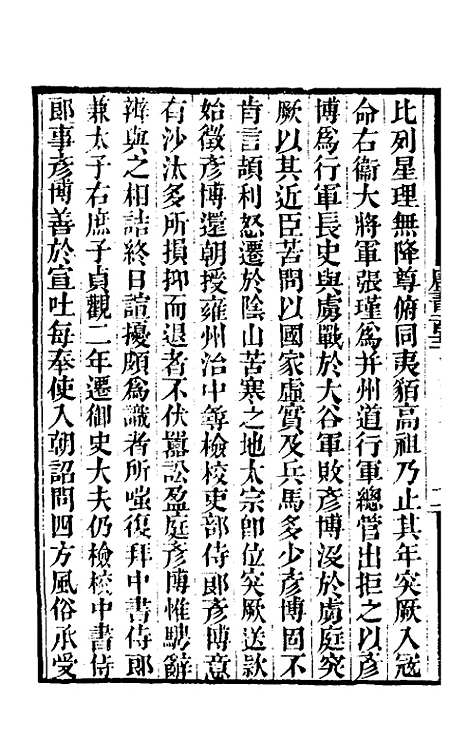 比列星理無降尊俯同夷貊高祖乃止其年突厥入寇
命右衞大將軍張瑾爲并州道行軍總管出拒之以彥
博爲行軍長史與虜戰於大谷軍敗彥博沒於虜庭突
厥以其近臣苦問以國家虛實及兵馬多少彥博固不
肯言頡利怒遷於陰山苦寒之地太宗卽位突厥送款
始徵彥博還朝授雍州治中尋檢校吏部侍郞彥博意
有沙汰多所損抑而退者不伏囂訟盈庭彥博惟騁辭
辨與之相詰終日諠擾頗爲識者所嗤復拜中書侍郞
兼太子右庶子貞觀二年遷御史大夫仍檢校中書侍
郞事彥博善於宣吐每奉使入朝詔問四方風俗承受